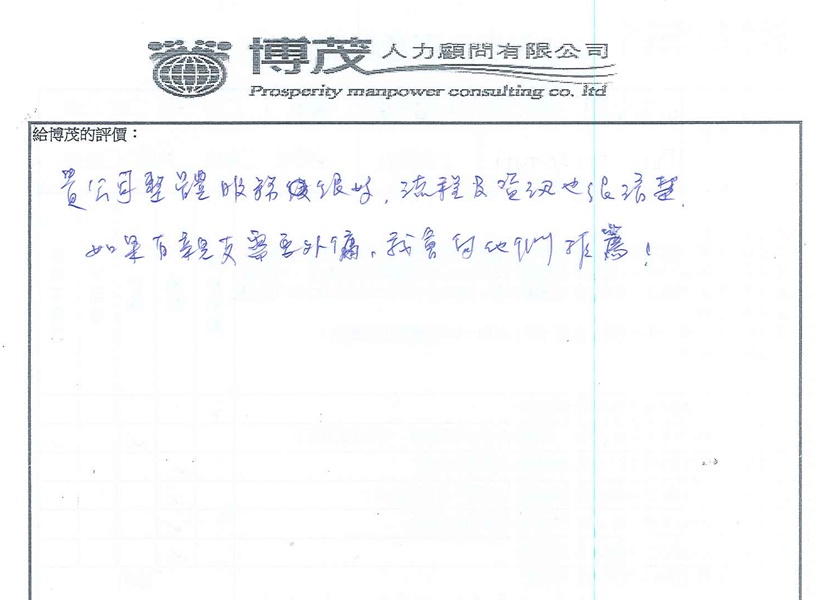 博茂人力顧問有限公司
Prosperity manpower consulting co. ltd
給博茂的評價：
貴公司整體服務很好，流程及資訊也很清楚。
如果有親友需要外傭，我會向他們推薦！